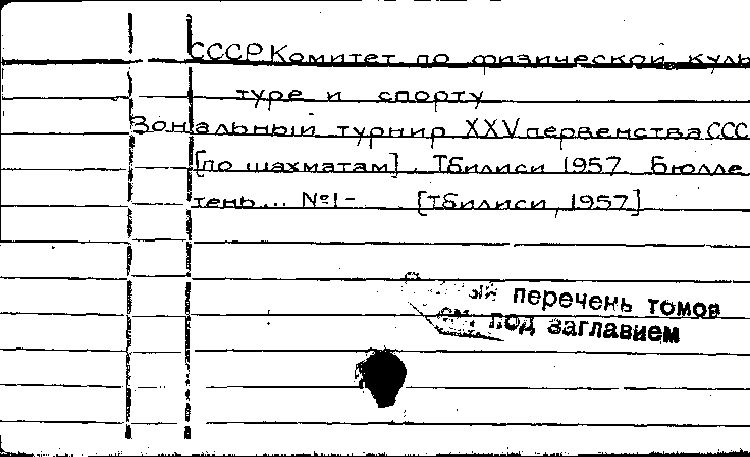 СССР Комитет по физической куль
туре и спорту
Зональный турнир XXV первенства ССС
[по шахматам]. Тбилиси 1957. Бюлле
тень... №1- [Тбилиси, 1957]
перечень томов
под заглавием